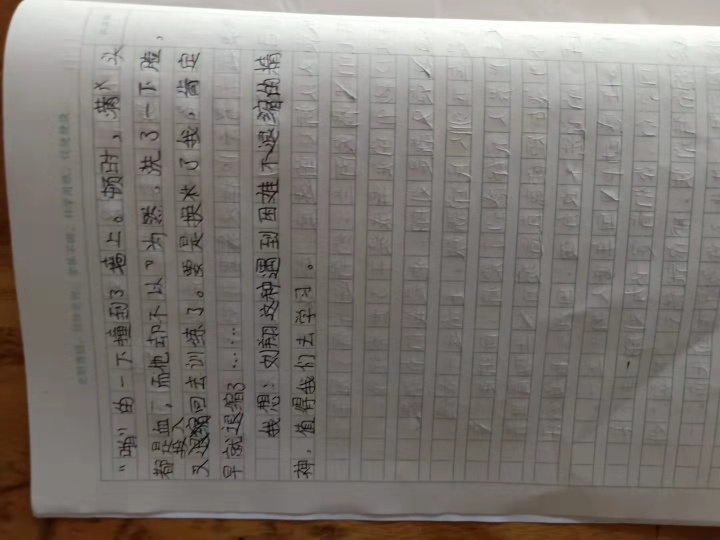 “啪”的一下撞到了墙上。顿时，满头
都是血，而他却不以”为然，洗了一下脸，
投入
又退缩回去训练了。要是换米了我，肯定
早就退缩了……
我想：刘翔这种遇到困难不退缩的精
神，值得我们去学习。